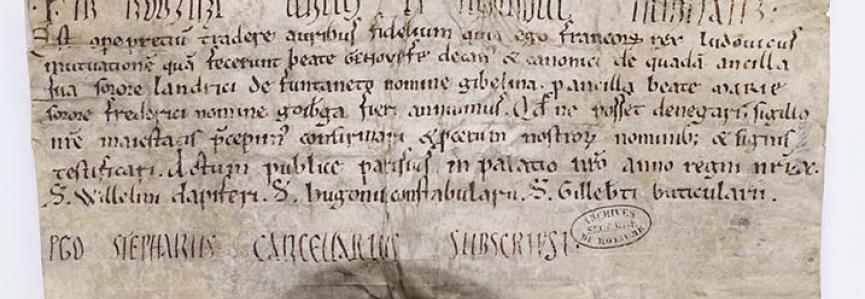 IN NOMINE SANCTE ET INDIVIDUE TRINITATIS.
Est opepreciũ tradere auribus fidelium quia ego francorȝ rex ludovicus
mutuationẽ quã fecerunt beate Genovefe decan⁹ & canonici de quadã ancilla
sua sorore landrici de funtaneto nomine gibelina. p ancilla beate marie
sorore frederici nomine fieri annuimus. Qđ ne posset denegari. sigillo
nr̃e maiestatis p̃cepim⁹ confirmari & pcerum nostrorȝ nominib; & signis
testificari. Actum publice parisius in palacio nr̃o anno regni nr̃i
S. Willelmi dapiferi. S. hugonis constabularii. S. Gilleb̃ti buticularii.
EGO STEPHANUS CANCELLARIUS SUBSCRIPSI.
ARCHIVES
DU ROYAUME